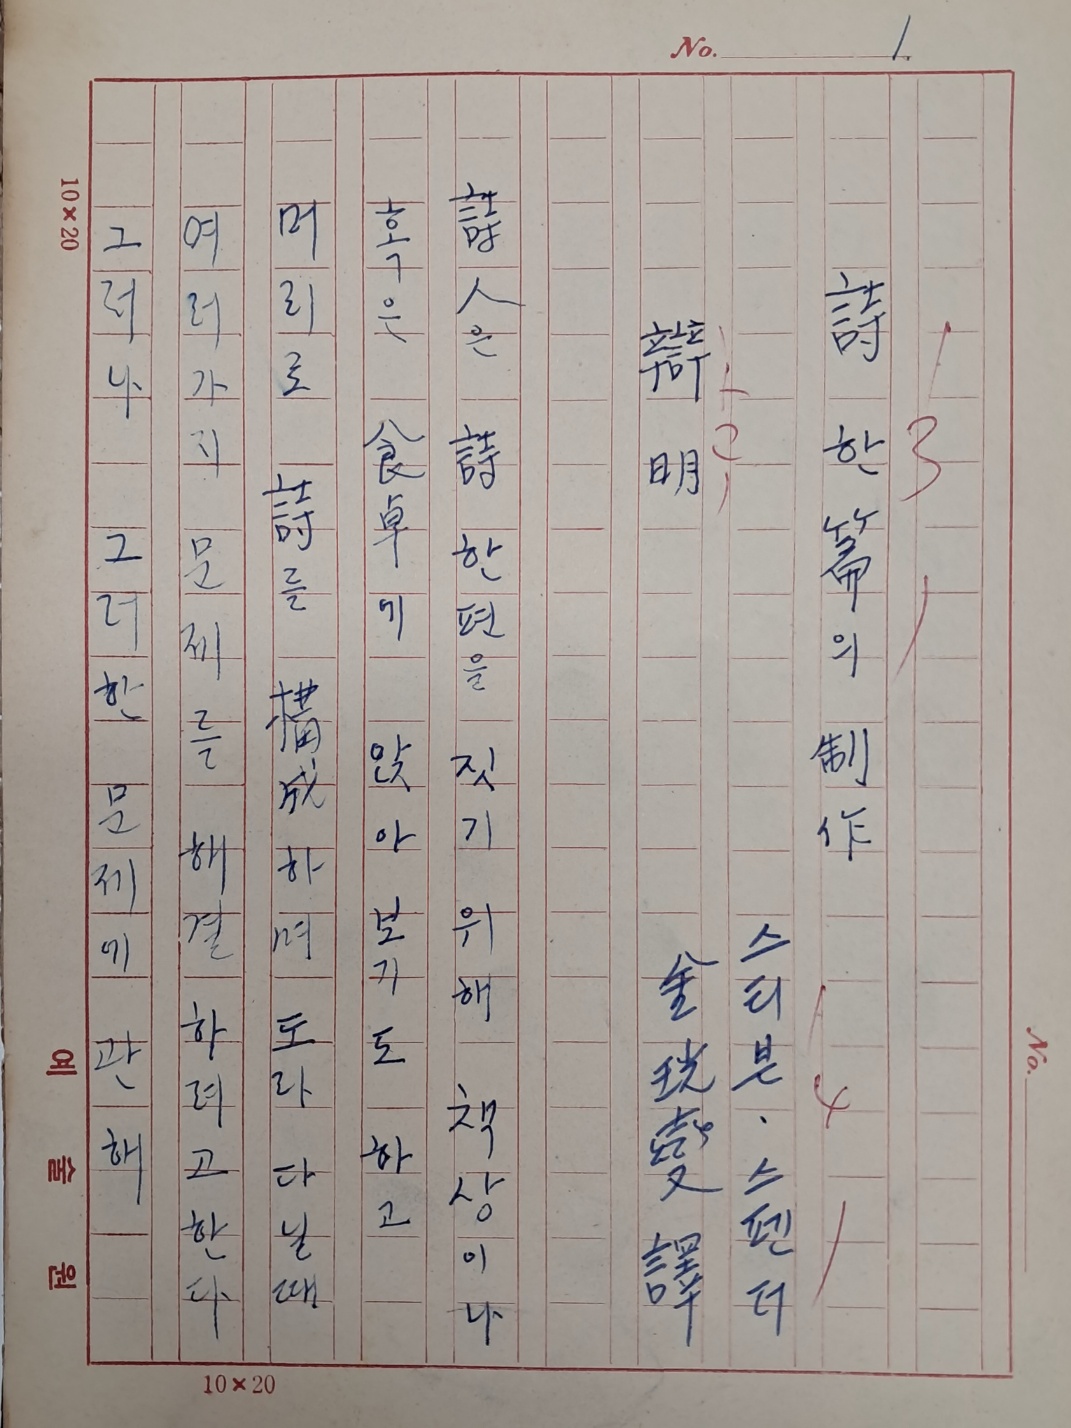 No. 1
詩 한 篇의 制作
스티븐・스펜더
金珖燮 譯
辯明
詩人은 詩 한편을 짓기 위해 책상이나
혹은 食卓에 앉아보기도 하고
머리로 詩를 構成하며 도라다닐때
여러가지 문제를 해결하려고한다
그러나 그러한 문제에 관해
3
4
2
No.
10×20
예술원
10×20